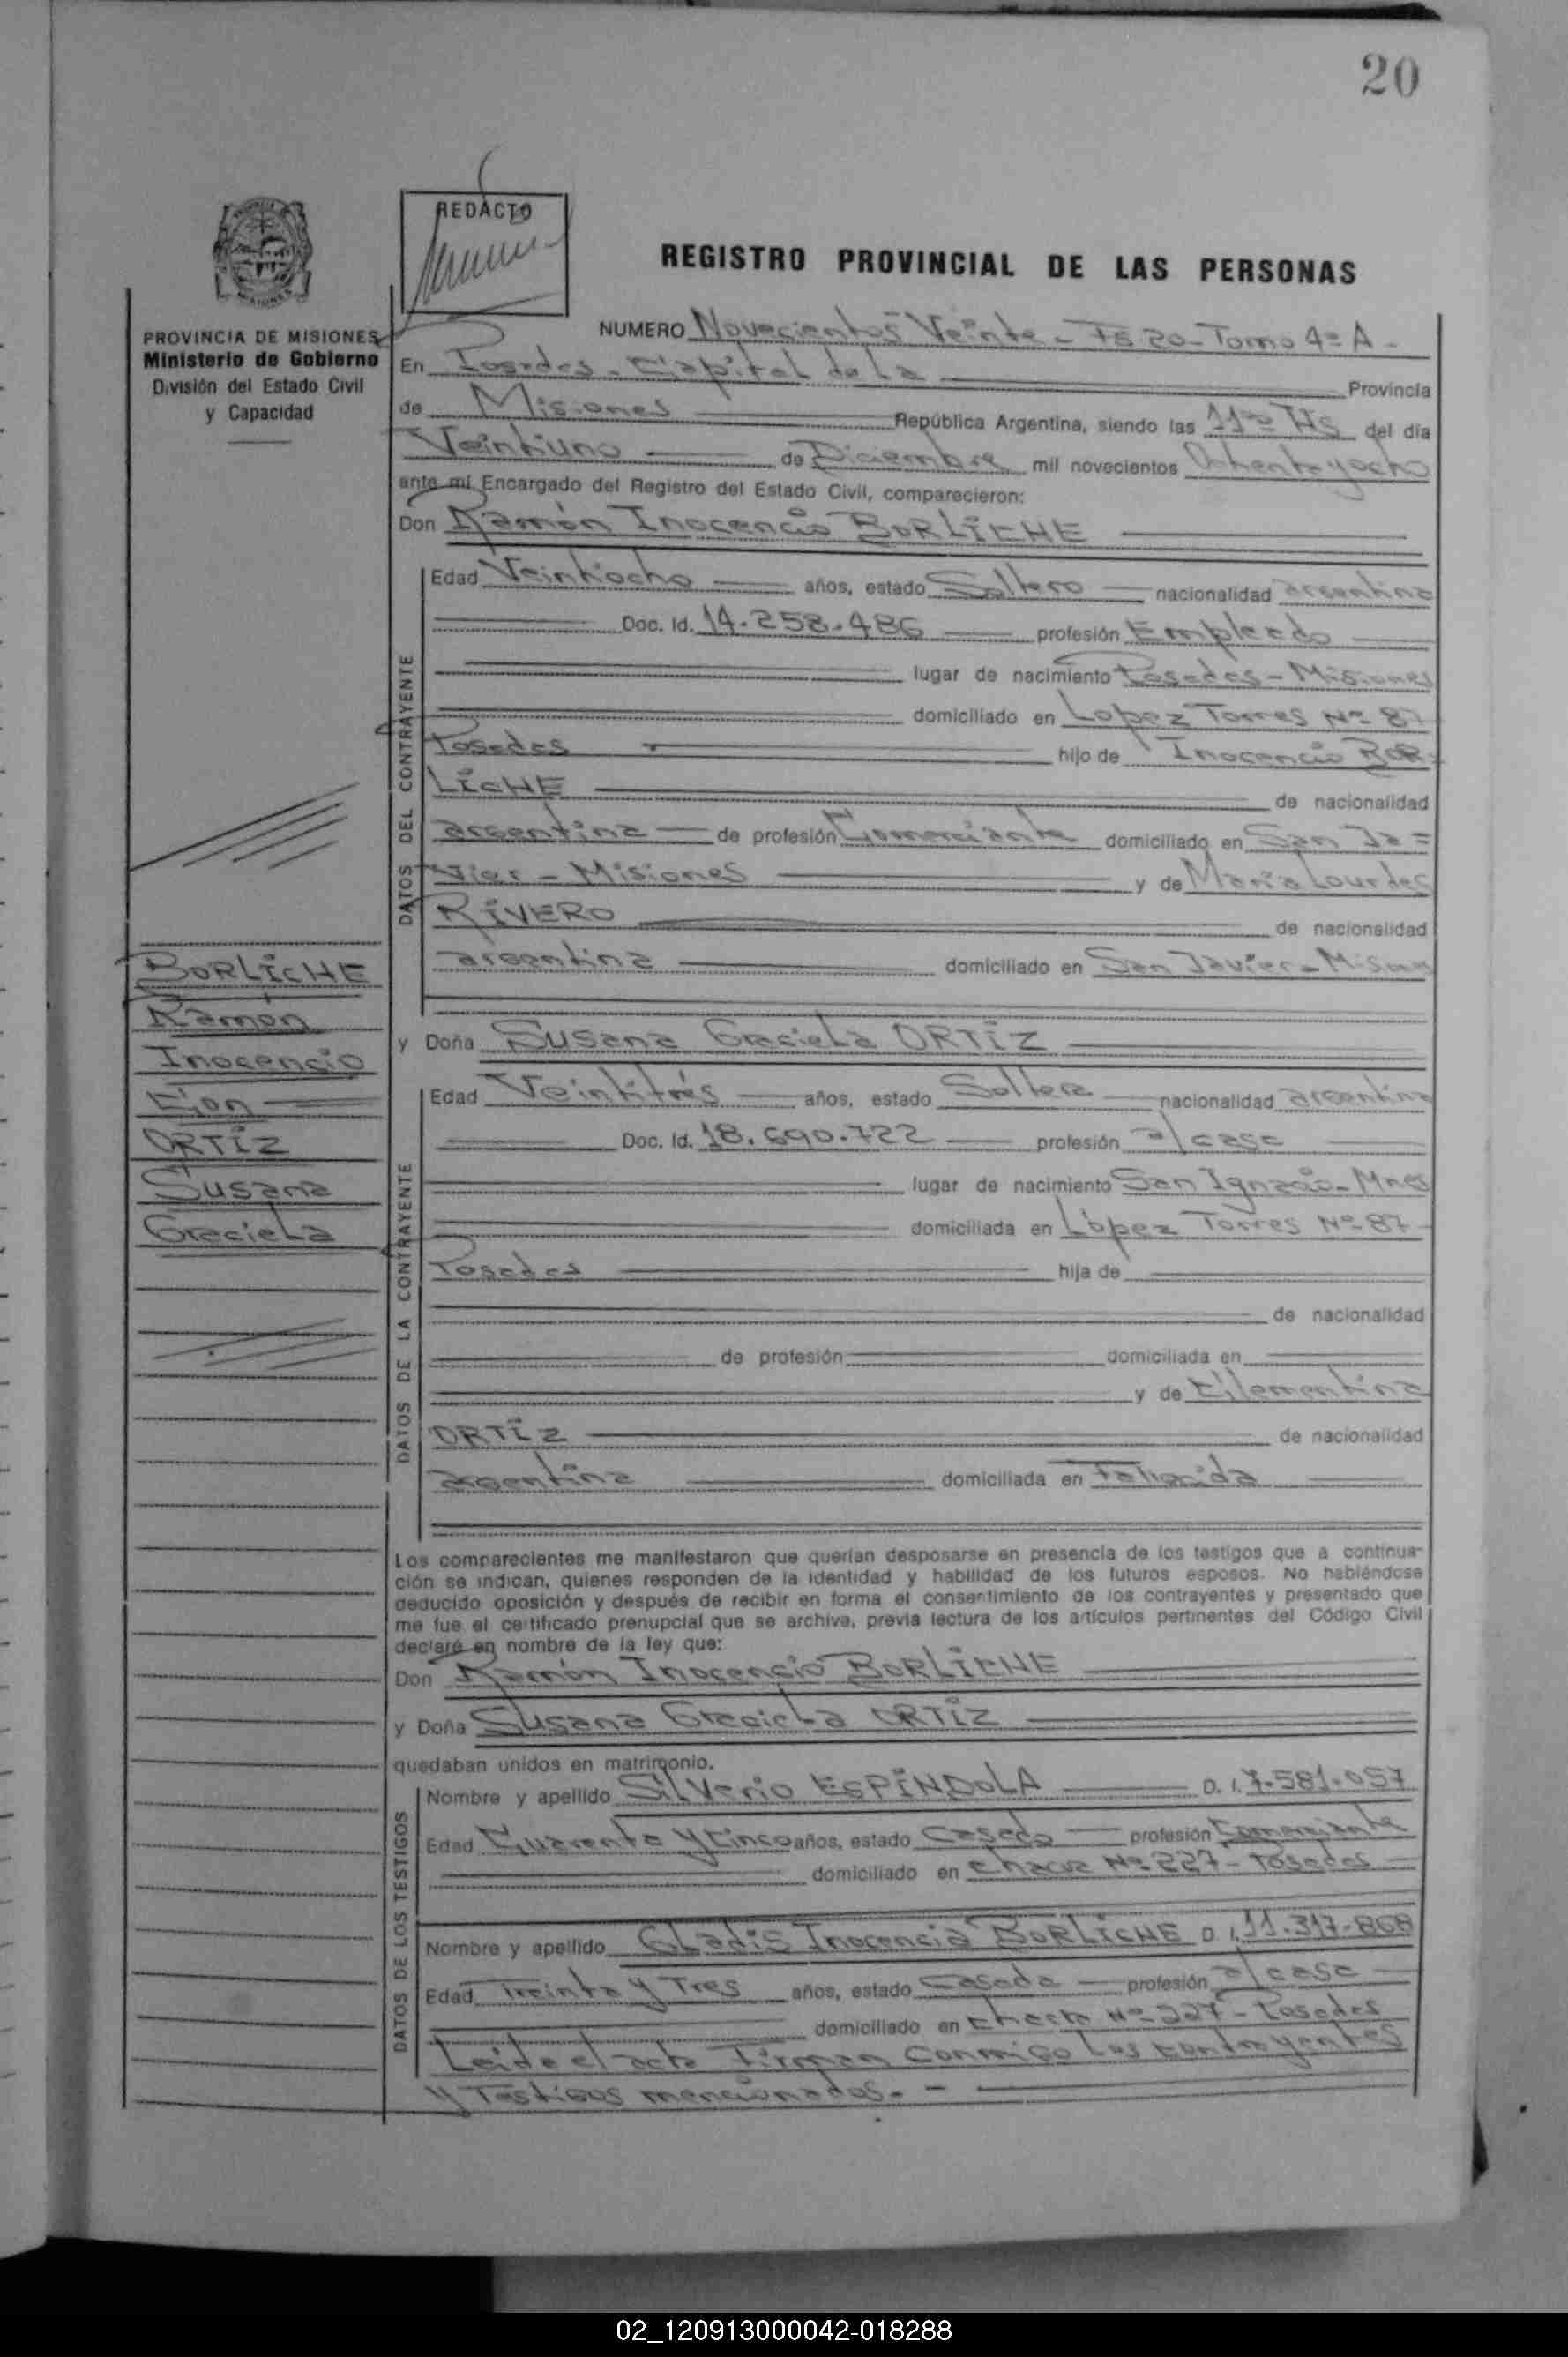 20
REDACTO
REGISTRO PROVINCIAL DE LAS PERSONAS
PROVINCIA DE MISIONES
Ministerio de Gobierno
División del Estado Civil
y Capacidad
NUMERO Novecientos Veinte - Fs 20 - Tomo 4º A -
En Posadas - Capital de La Provincia
de Misiones República Argentina, siendo las 11ºº Hs del día
Veintiuno de Diciembre mil novecientos Ochenta y ocho
ante mí Encargado del Registro del Estado Civil, comparecieron:
Don Ramón Inocencio BORLiCHE
DATOS DEL CONTRAYENTE
Edad Veintiocho años, estado Soltero nacionalidad argentina
Doc. Id. 14.258.486 profesión Empleado
lugar de nacimiento Posadas - Misiones
domiciliado en Lopez Torres Nº 87
Posadas hijo de Inocencio BOR=
LiCHE de nacionalidad
argentina de profesión Comerciante domiciliado en San Ja=
vier - Misiones y de María Lourdes
RiVERO de nacionalidad
argentina domiciliado en San Javier - Misiones
BORLiCHE
Ramón
Inocencio
Con
ORTiZ
Susana
Graciela
y Doña Susana Graciela ORTiZ
DATOS DE LA CONTRAYENTE
Edad Veintitrés años, estado Soltera nacionalidad argentina
Doc. Id. 18.690.722 profesión a/casa
lugar de nacimiento San Ignacio - Mnes
domiciliada en López Torres Nº 87 -
Posadas hija de
de nacionalidad
de profesión domiciliada en
y de Clementina
ORTiZ de nacionalidad
argentina domiciliada en Fallecida
Los comparecientes me manifestaron que querían desposarse en presencia de los testigos que a continua-
ción se indican, quienes responden de la identidad y habilidad de los futuros esposos. No habiéndose
deducido oposición y después de recibir en forma el consentimiento de los contrayentes y presentado que
me fue el certificado prenupcial que se archiva, previa lectura de los artículos pertinentes del Código Civil
declaré en nombre de la ley que:
Don Ramón Inocencio BORLiCHE
y Doña Susana Graciela ORTiZ
quedaban unidos en matrimonio.
DATOS DE LOS TESTIGOS
Nombre y apellido SiLVerio ESPÍNDOLA D. I. 7.581.057
Edad Cuarenta y Cinco años, estado Casado profesión Comerciante
domiciliado en Chacra Nº 227 - Posadas
Nombre y apellido GLadis Inocencia BORLiCHE D. I. 11.317.868
Edad Treinta y Tres años, estado Casada profesión a/casa
domiciliado en Chacra Nº 227 - Posadas
Leida el acta Firman conmigo Los contrayentes
y Testigos mencionados. -
02_120913000042-018288